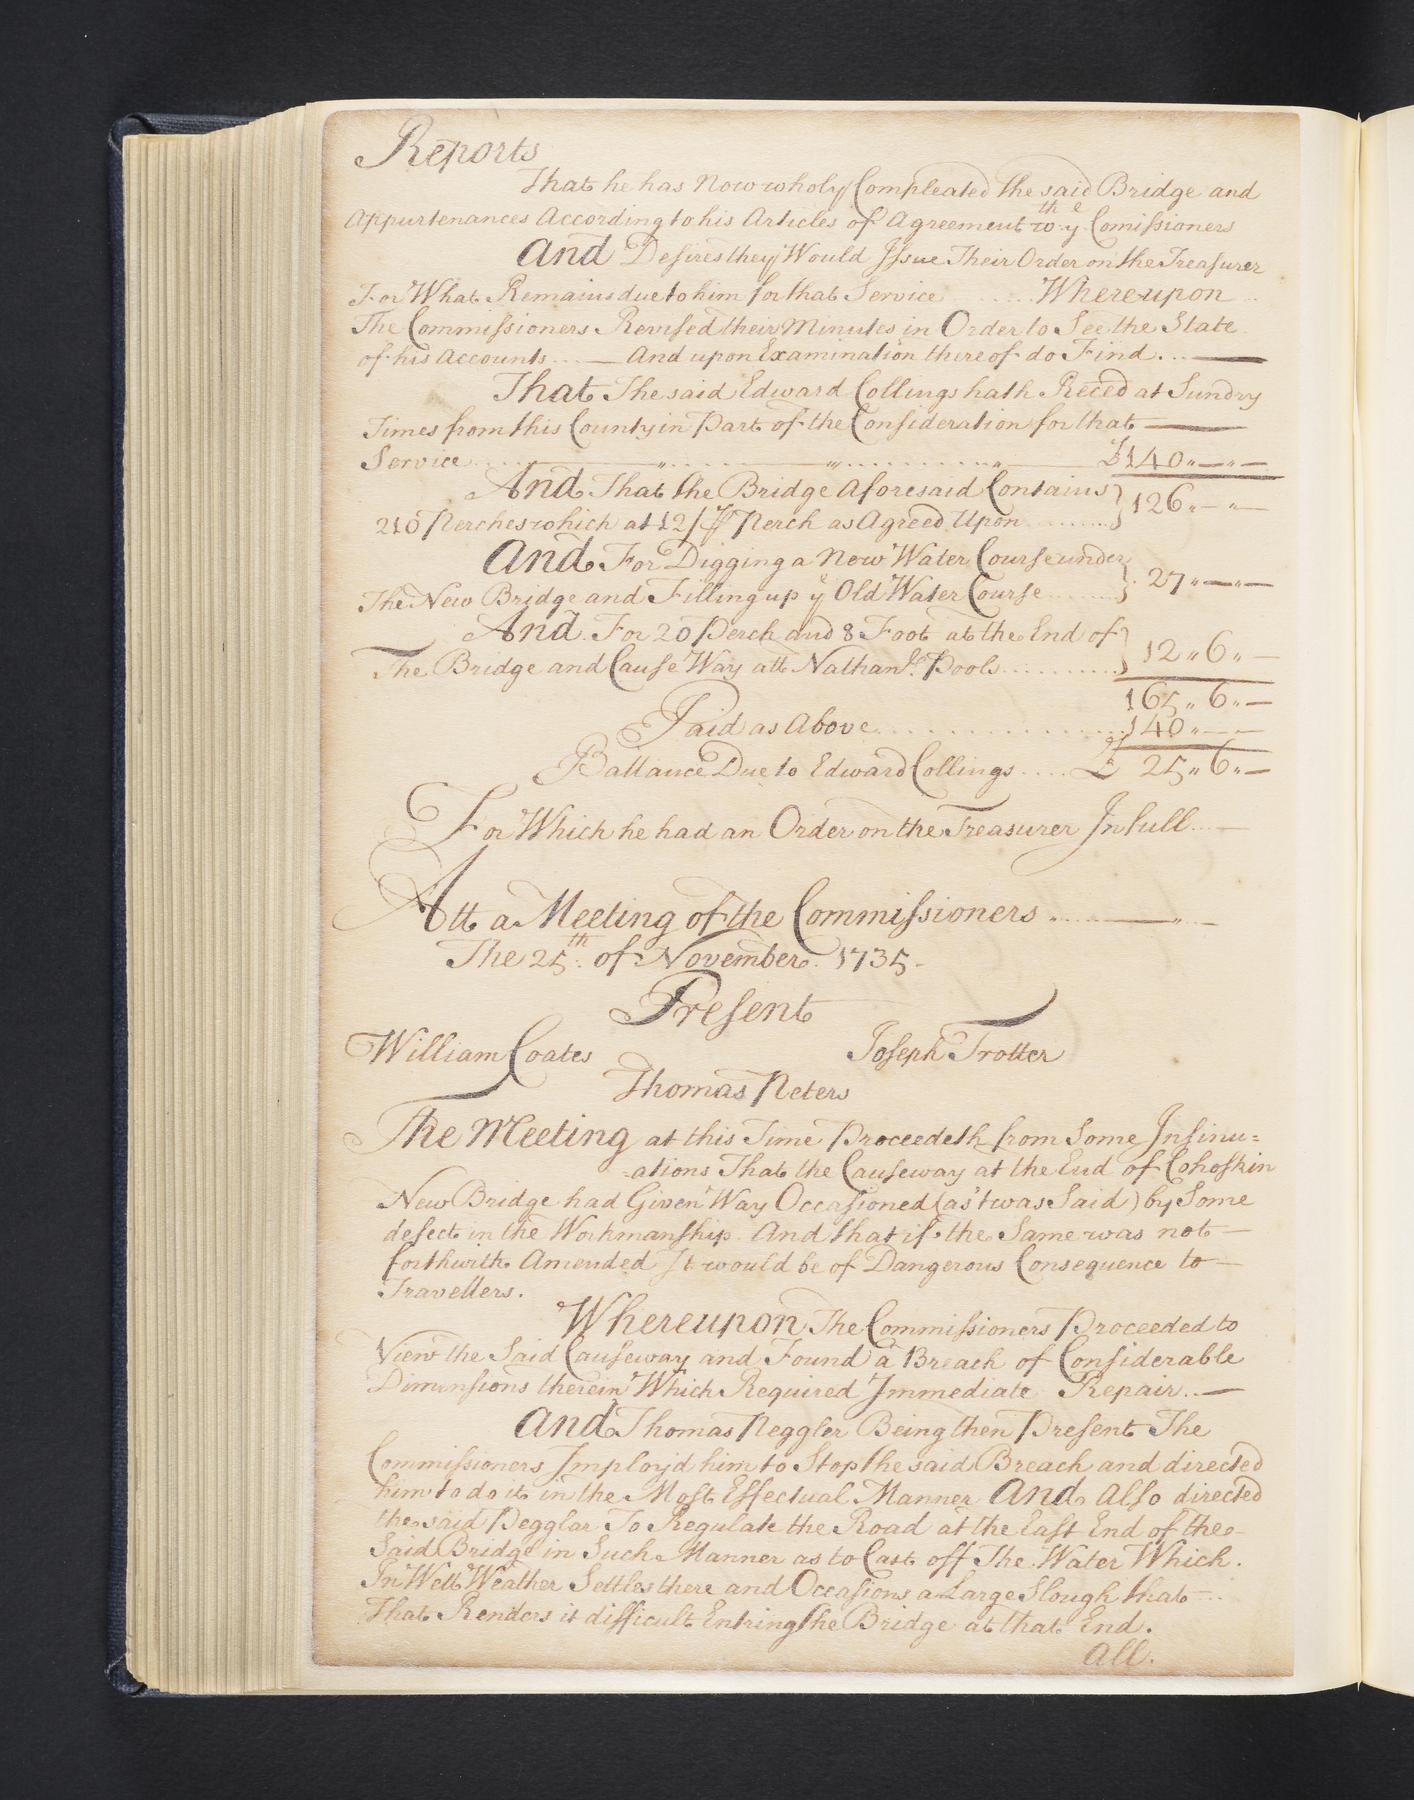 Reports
That he has Now wholy Compleated the said Bridge and
Appurtenances According to his Articles of Agreement wth ye Comissioners
And Desires they Would Issue Their Order on the Treasurer
For What Remains due to him for that Service ...... Whereupon ..
The Commissioners Revised their Minutes in Order to See the State
of his Accounts ... — And upon Examination thereof do Find ... —
That The said Edward Collings hath Reced at Sundry
Times from this County in Part of the Consideration for that —
Service ... £140 „ — „ —
And That the Bridge Aforesaid Contains } 126 „ — „ —
210 Perches which at 12/ ℔ Perch as Agreed Upon ........
And For Digging a New Water Course under } 27 „ — „ —
The New Bridge and Filling up ye Old Water Course ........
And For 20 Perch and 8 Foot at the End of } 12 „ 6 „ —
The Bridge and Cause Way att Nathanl. Pools ...........
165 „ 6 „ —
Paid as Above .................. 140 „ — —
Ballance Due to Edward Collings ..... £ 25 „ 6 „ —
For Which he had an Order on the Treasurer In full ... —
Att a Meeting of the Commissioners ... — „ —
The 25th. of November. 1735 -
Present
William Coates Joseph Trotter
Thomas Peters
The Meeting at this Time Proceedeth from Some Insinu=
-ations That the Causeway at the End of Cohoskin
New Bridge had Given Way Occasioned (as 'twas Said) by Some
defect in the Workmanship. And that if the Same was not —
forthwith Amended It would be of Dangerous Consequence to —
Travellers.
Whereupon The Commissioners Proceeded to
View the Said Causeway and Found a Breach of Considerable
Dimensions therein Which Required Immediate Repair .. —
And Thomas Peggler Being then Present The
Commissioners Imploy'd him to Stop the said Breach and directed
him to do it in the Most Effectual Manner And Also directed
the said Pegglar To Regulate the Road at the East End of the -
Said Bridge in Such Manner as to Cast off The Water Which .
In Wett Weather Settles there and Occasions a Large Slough that - ..
That Renders it difficult Entring the Bridge at that End .
All.